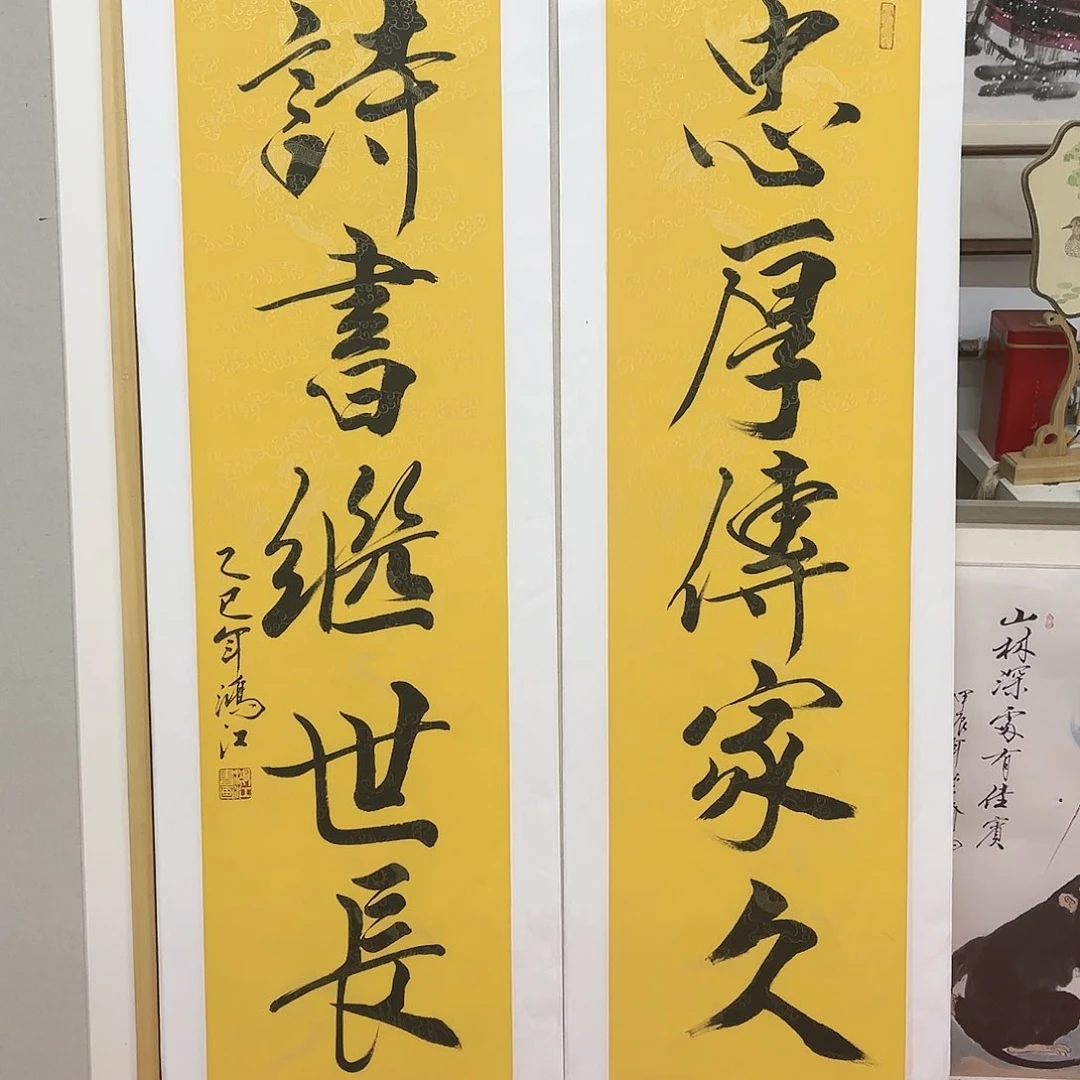 忠厚傳家久
詩書繼世長
乙巳年鴻江
山林深處有佳賓